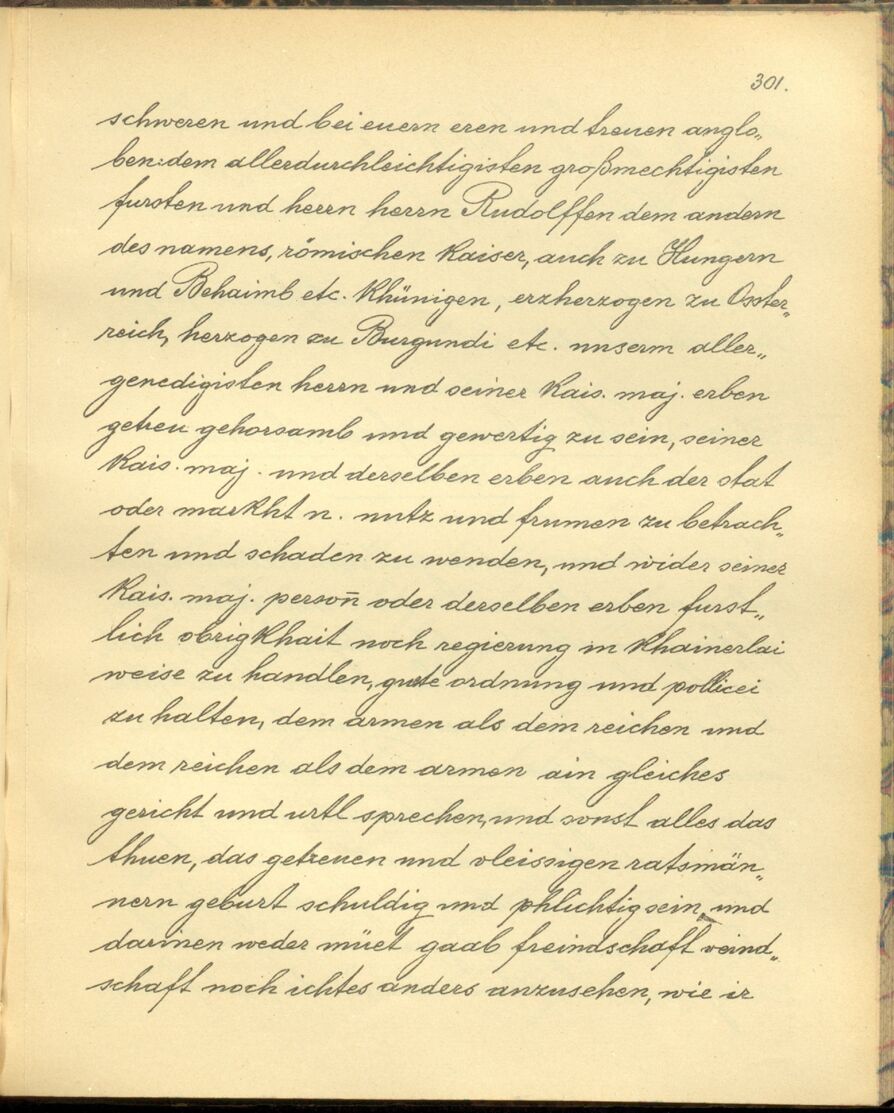 301.
schweren und bei euern eren und treuen anglo„
ben: dem allerdurchleichtigisten großmechtigisten
fursten und herrn herrn Rudolffen dem andern
des namens, römischen Kaiser, auch zu Hungern
und Behaimb etc. Khünigen, erzherzogen zu Osster„
reich, herzogen zu Burgundi etc. unserm aller„
genedigisten herrn und seiner Kais. maj. erben
getreu gehorsamb und gewertig zu sein, seiner
Kais. maj. und derselben erben auch der stat
oder markht n. nutz und frumen zu betrach„
ten und schaden zu wenden, und wider seiner
Kais. maj. persoñ oder derselben erben furst„
lich obrigkhait noch regierung in khainerlai
weise zu handlen, guete ordnung und pollicei
zu halten, dem armen als dem reichen und
dem reichen als dem armen ain gleiches
gericht und urtl sprechen, und sonst alles das
thuen, das getreuen und vleissigen ratsmän„
nern geburt schuldig und phlichtig sein, und
darinen weder müet gaab freindschaft veind„
schaft noch ichtes anders anzusehen, wie ir